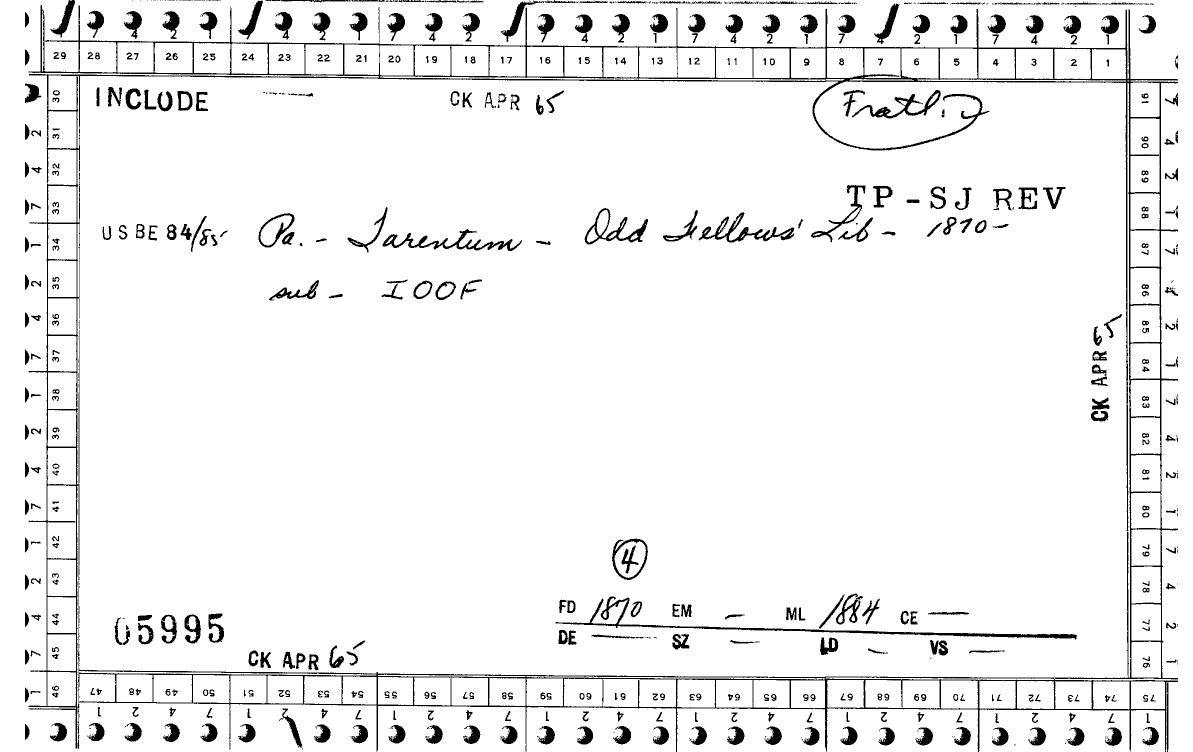 7 4 2 1 7 4 2 1 7 4 2 1 7 4 2 1 7 4 2 1 7 4 2 1
29 28 27 26 25 24 23 22 21 20 19 18 17 16 15 14 13 12 11 10 9 8 7 6 5 4 3 2 1
INCLUDE — CK APR 65
TP-SJ REV
USBE 84/85 Pa. - Tarentum - Odd Fellows' Lib - 1870-
sub - IOOF
CK APR 65
4
FD 1870 EM — ML 1884 CE —
DE — SZ — LD — VS —
05995
CK APR 65
30 31 32 33 34 35 36 37 38 39 40 41 42 43 44 45 46
91 90 89 88 87 86 85 84 83 82 81 80 79 78 77 76
47 48 49 50 51 52 53 54 55 56 57 58 59 60 61 62 63 64 65 66 67 68 69 70 71 72 73 74 75
1 2 4 7 1 2 4 7 1 2 4 7 1 2 4 7 1 2 4 7 1 2 4 7 1 2 4 7 1